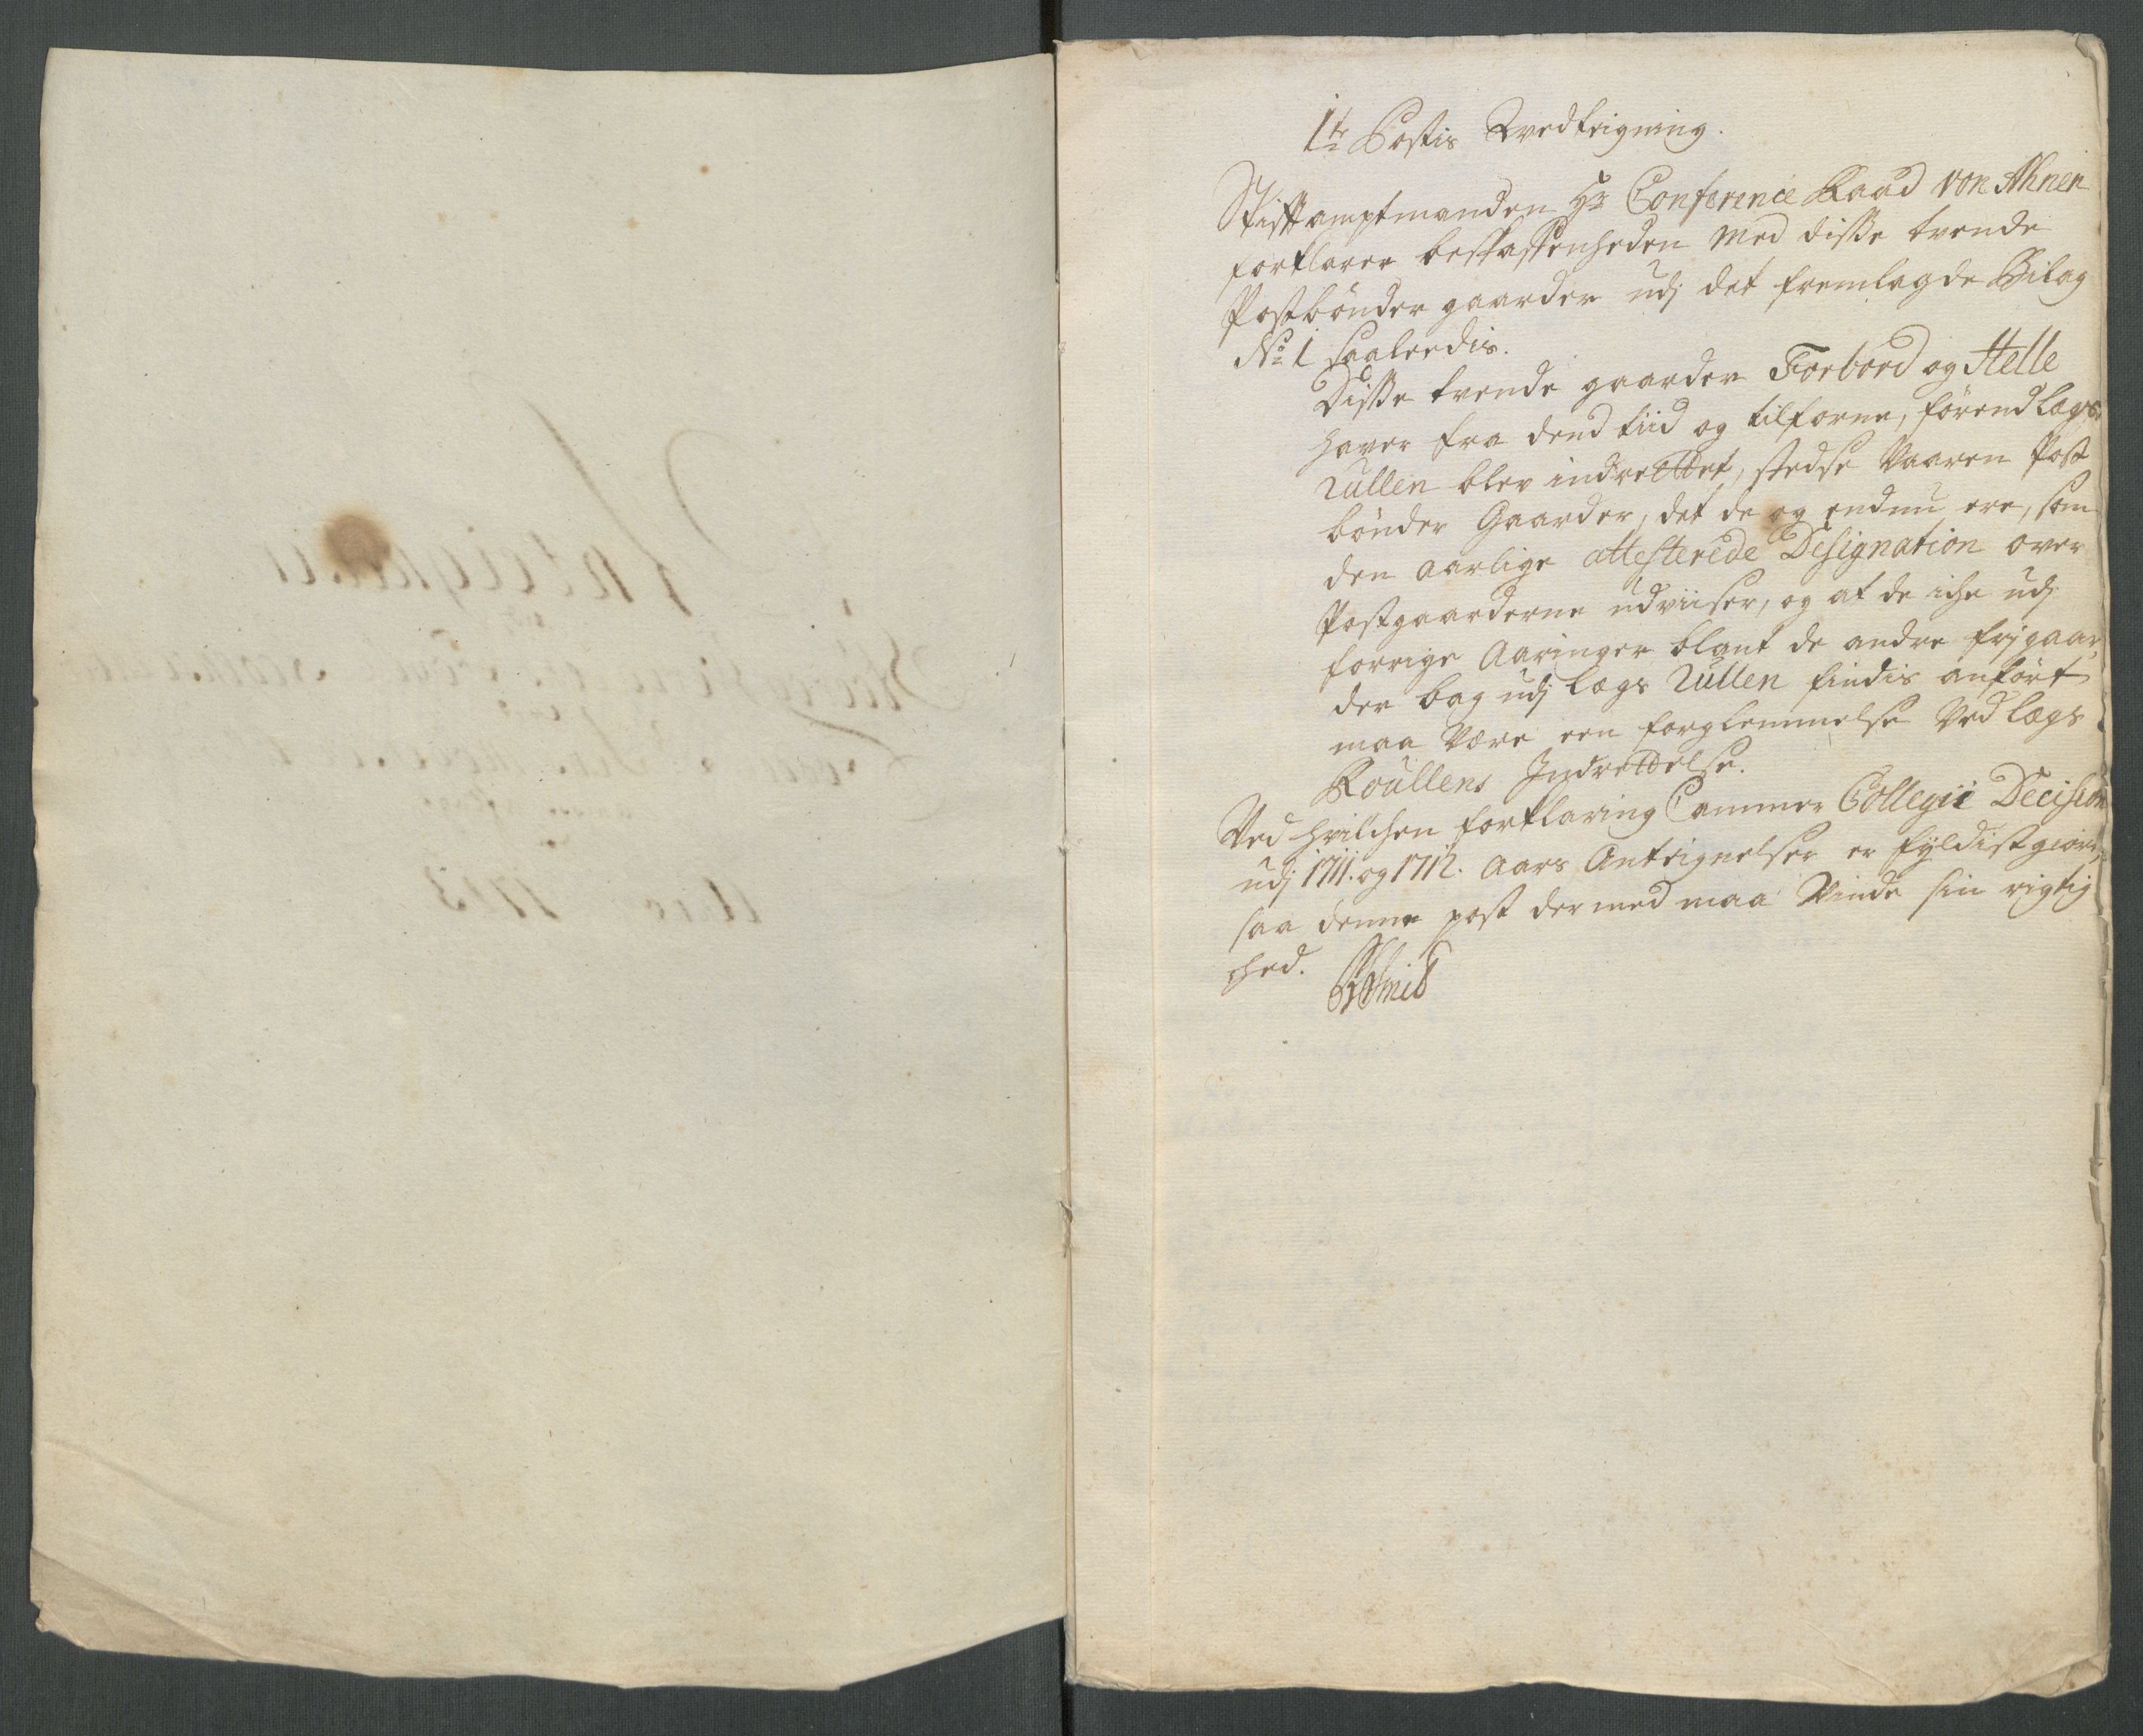 1te Postis Qvedteigning.
Stiftamptmanden Hr Conference Raad von Ahnen
forklarer beskaffenheden med disse tvende
Postbönder gaarder udj det fremlagde Bilag
No 1 saaleedis.
Disse tvende gaarder Forbord og Helle
haver fra dend tiid og tilforne, förend Lægs
Rullen blev indrettet, stedse Vaaren Post
bönder Gaarder, det de og endnu ere, som
den aarlige attesterede Designation over
Postgaarderne udviiser, og at de iche udj
forrige Aaringer blant de andre frj gaar,
der bag udj Lægs Rullen findis anfört
maa være een forglemmelse Ved Lægs
Roullens Indrettelse.
Ved hvilchen forklaring Cammer Collegii Decision
udj 1711. og 1712. Aars Anteignelser er fyldistgiort,
saa denne post dermed maa Vinde sin rigtig
hed.
Anno 1713